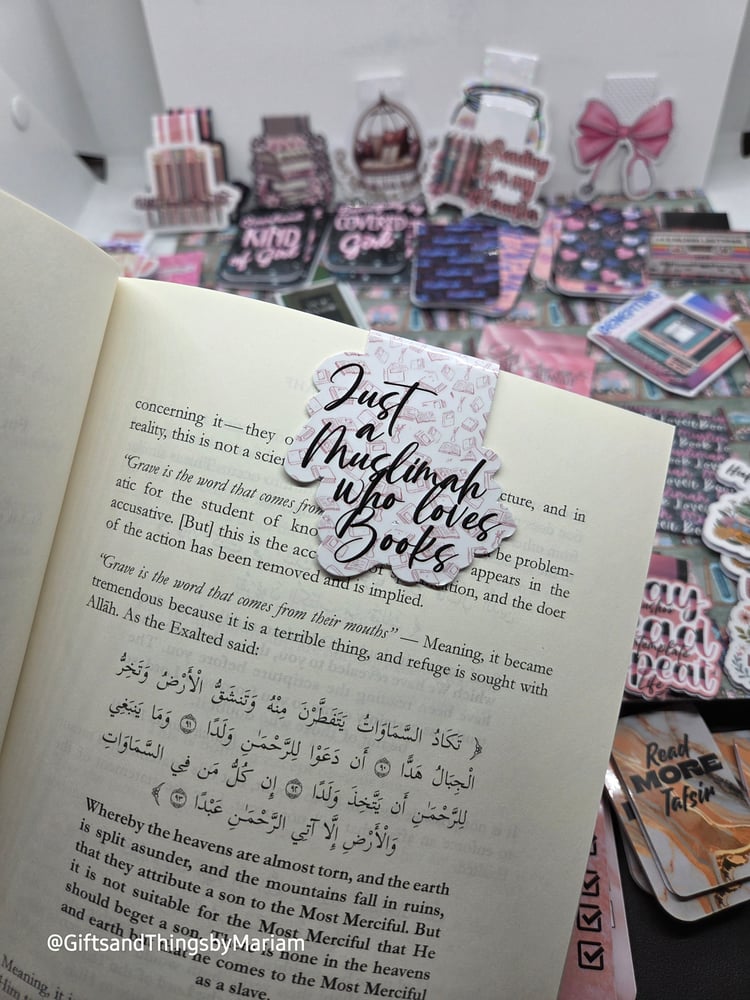 Reading
is my
KIND
of Girl
COVERED
Girl
Just
a
Muslimah
who loves
Books
concerning it—they o
reality, this is not a scien
cture, and in
“Grave is the word that comes from
atic for the student of kno
be problem-
accusative. [But] this is the acc
appears in the
of the action has been removed and is implied.
and the doer
“Grave is the word that comes from their mouths” — Meaning, it became
tremendous because it is a terrible thing, and refuge is sought with
Allāh. As the Exalted said:
﴿ تَكَادُ السَّمَاوَاتُ يَتَفَطَّرْنَ مِنْهُ وَتَنشَقُّ الْأَرْضُ وَتَخِرُّ
الْجِبَالُ هَدًّا ٩٠ أَن دَعَوْا لِلرَّحْمَـٰنِ وَلَدًا ٩١ وَمَا يَنبَغِي
لِلرَّحْمَـٰنِ أَن يَتَّخِذَ وَلَدًا ٩٢ إِن كُلُّ مَن فِي السَّمَاوَاتِ
وَالْأَرْضِ إِلَّا آتِي الرَّحْمَـٰنِ عَبْدًا ٩٣ ﴾
Whereby the heavens are almost torn, and the earth
is split asunder, and the mountains fall in ruins,
that they attribute a son to the Most Merciful. But
it is not suitable for the Most Merciful that He
should beget a son. There is none in the heavens
and earth but that he comes to the Most Merciful
as a slave.
Meaning, it i
Read
MORE
Tafsir
@GiftsandThingsbyMariam